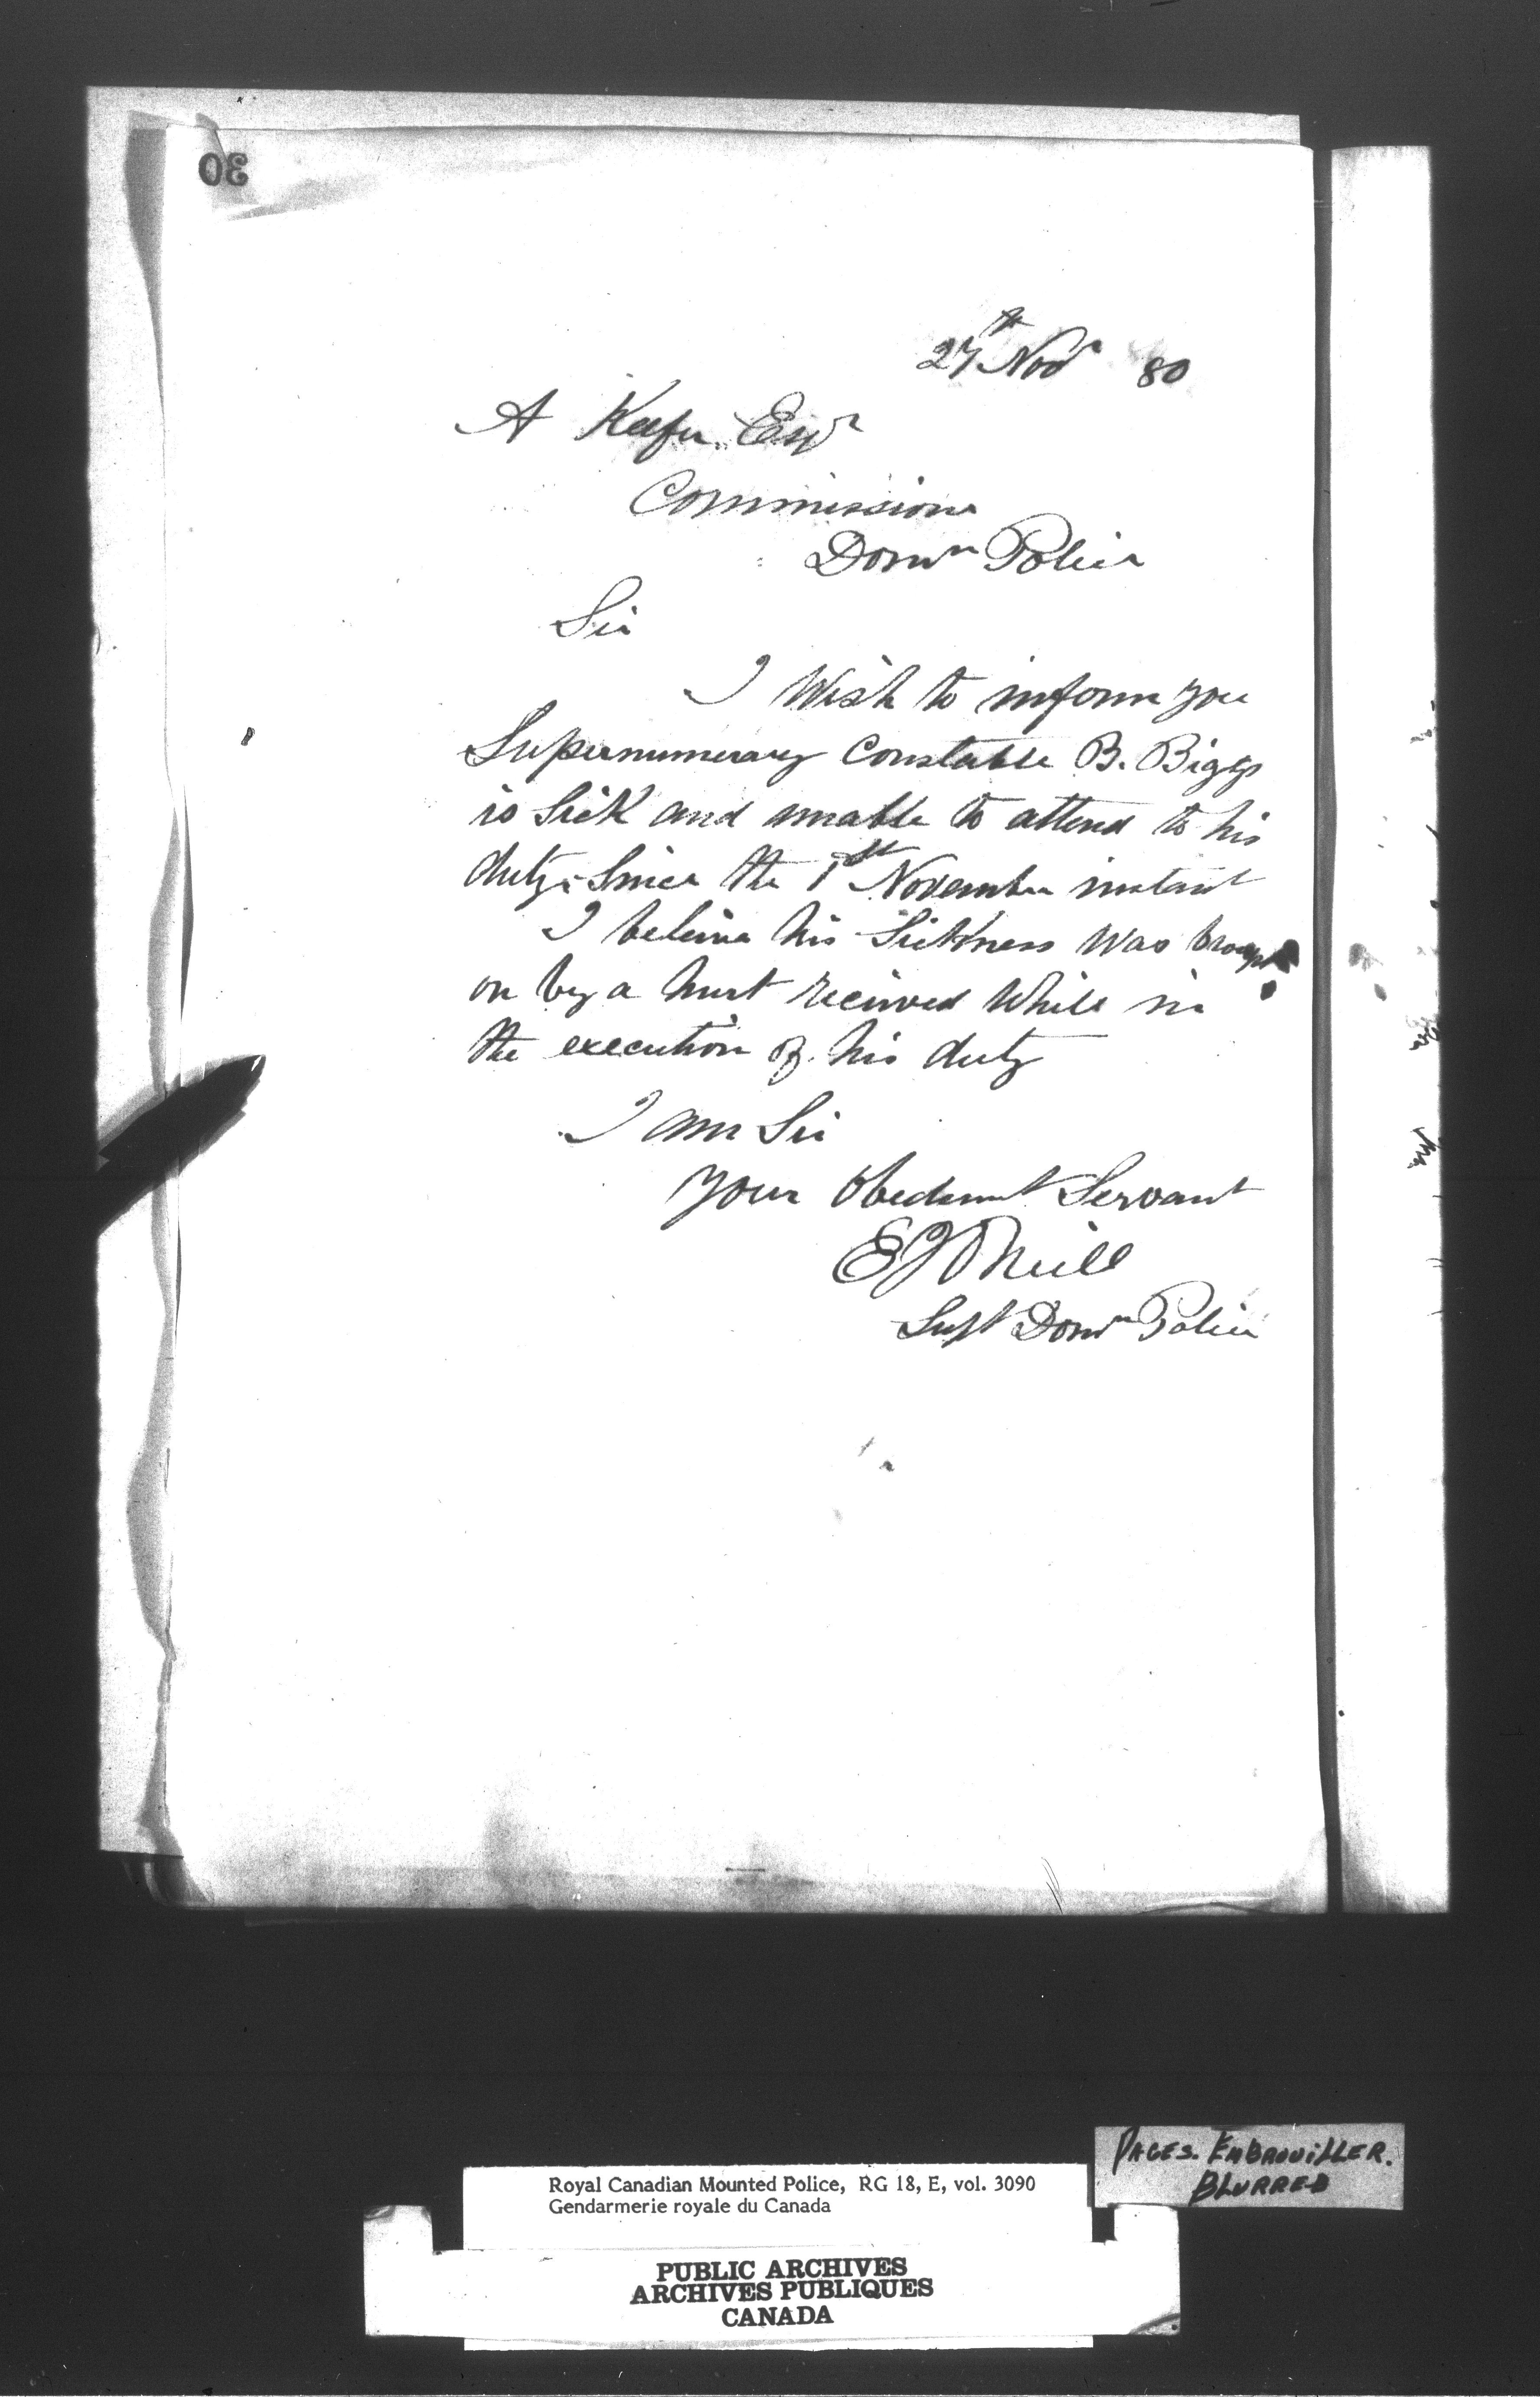 30
27th Novr 80
A Keefer Esqr
Commissioner
Domn Police
Sir
I Wish to inform you
Supernumerary Constable B. Biggs
is Sick and unable to attend to his
duty Since the 1st November instant
I beleive his Sickness was brought
on by a hurt received While in
the execution of his duty
I am Sir
Your Obedient Servant
E J O'Neill
Supt Domn Police
PAGES. EMBROUILLER.
BLURRED
Royal Canadian Mounted Police, RG 18, E, vol. 3090
Gendarmerie royale du Canada
PUBLIC ARCHIVES
ARCHIVES PUBLIQUES
CANADA